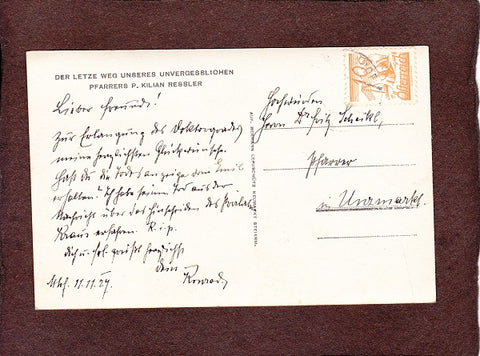 DER LETZE WEG UNSERES UNVERGESSLICHEN
PFARRERS P. KILIAN RESSLER
Lieber Freund!
Zur Erlangung des Doktorgrades
meine herzlichsten Glückwünsche.
Hast du die Todesanzeige vom Emil
erhalten? Ich habe seinen Tod aus der
Nachricht über das Hinscheiden des Prälat
Kraus erfahren. R.i.p.
Dich u. grüßt herzlichst
Dein
Konrad
11.11.27.
Hochwürden
Herrn Dr Fritz Scheikl,
Pfarrer
in Unzmarkt.